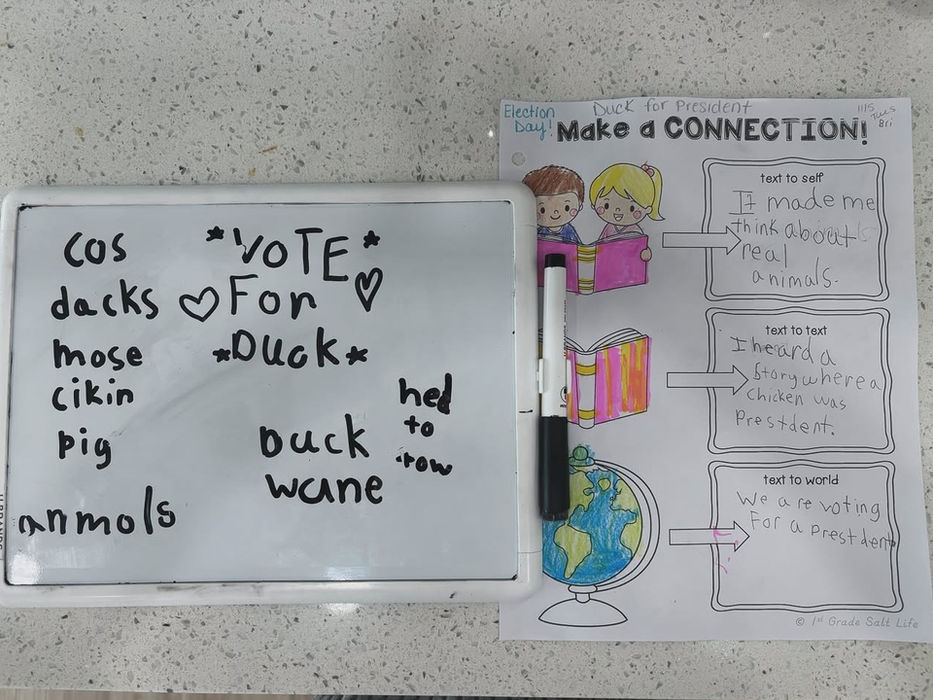 cos
dacks
mose
cikin
pig
anmols
*VOTE*
For
*DUCK*
Duck
wane
hed
to
row
Election
Day!
Duck for President
11/5
Tues
Bri
Make a CONNECTION!
text to self
It made me
think about
real
animals.
text to text
I heard a
Story where a
chicken was
PresIdent.
text to world
We are voting
For a PresIdent
© 1st Grade Salt Life